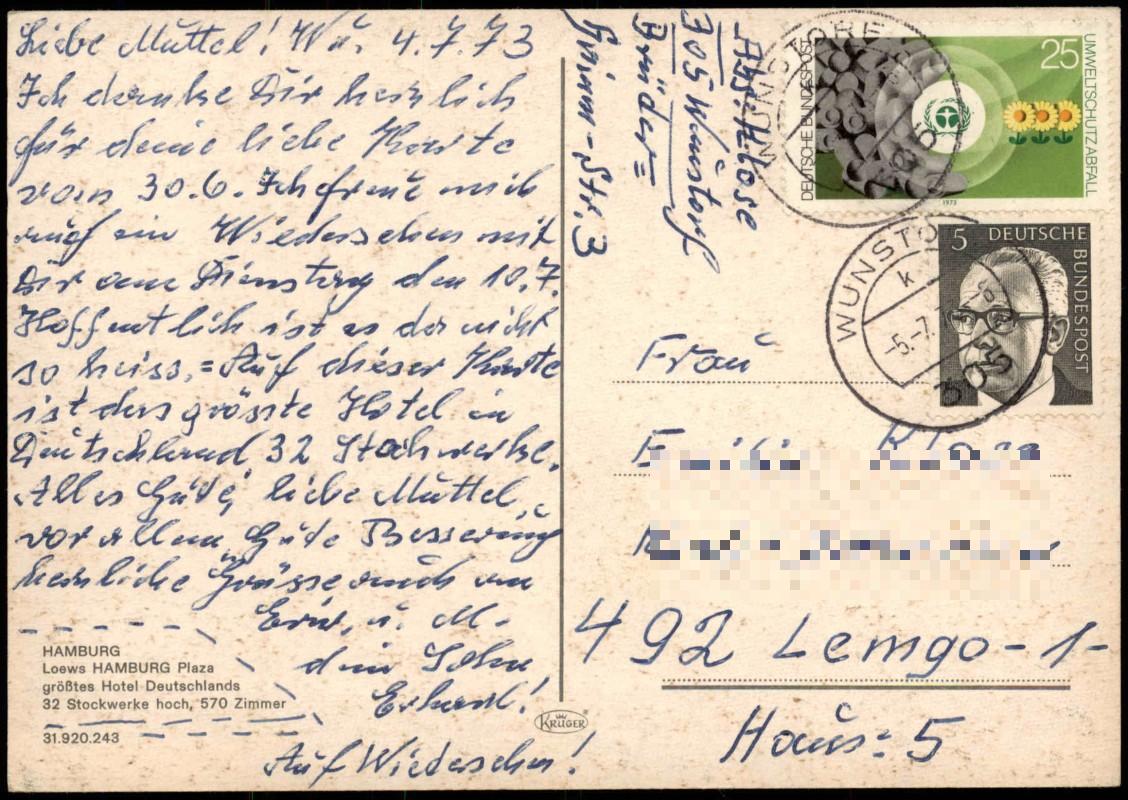 Liebe Muttel! Wu. 4.7.73
Ich danke Dir herzlich
für deine liebe Karte
vom 30.6. Ich freue mich
auf ein Wiedersehen mit
Dir am Dienstag den 10.7.
Hoffentlich ist es da nicht
so heiss,=Auf dieser Karte
ist das grösste Hotel in
Deutschland, 32 Stockwerke.
Alles Gute, liebe Muttel,
vor allem Gute Besserung
herzliche Grüsse auch an
u. M.
dein Sohn
Erhard!
Auf Wiedersehen!
HAMBURG
Loews HAMBURG Plaza
größtes Hotel Deutschlands
32 Stockwerke hoch, 570 Zimmer
31.920.243
KRÜGER
Abs.: Klose
305 Wunstorf
Brüder=
Grimm-Str. 3
DEUTSCHE BUNDESPOST
25
UMWELTSCHUTZ ABFALL
1973
WUNSTORF
5 DEUTSCHE
BUNDESPOST
WUNSTO
k
-5.-7.
305
Frau
492 Lemgo-1-
Haus: 5